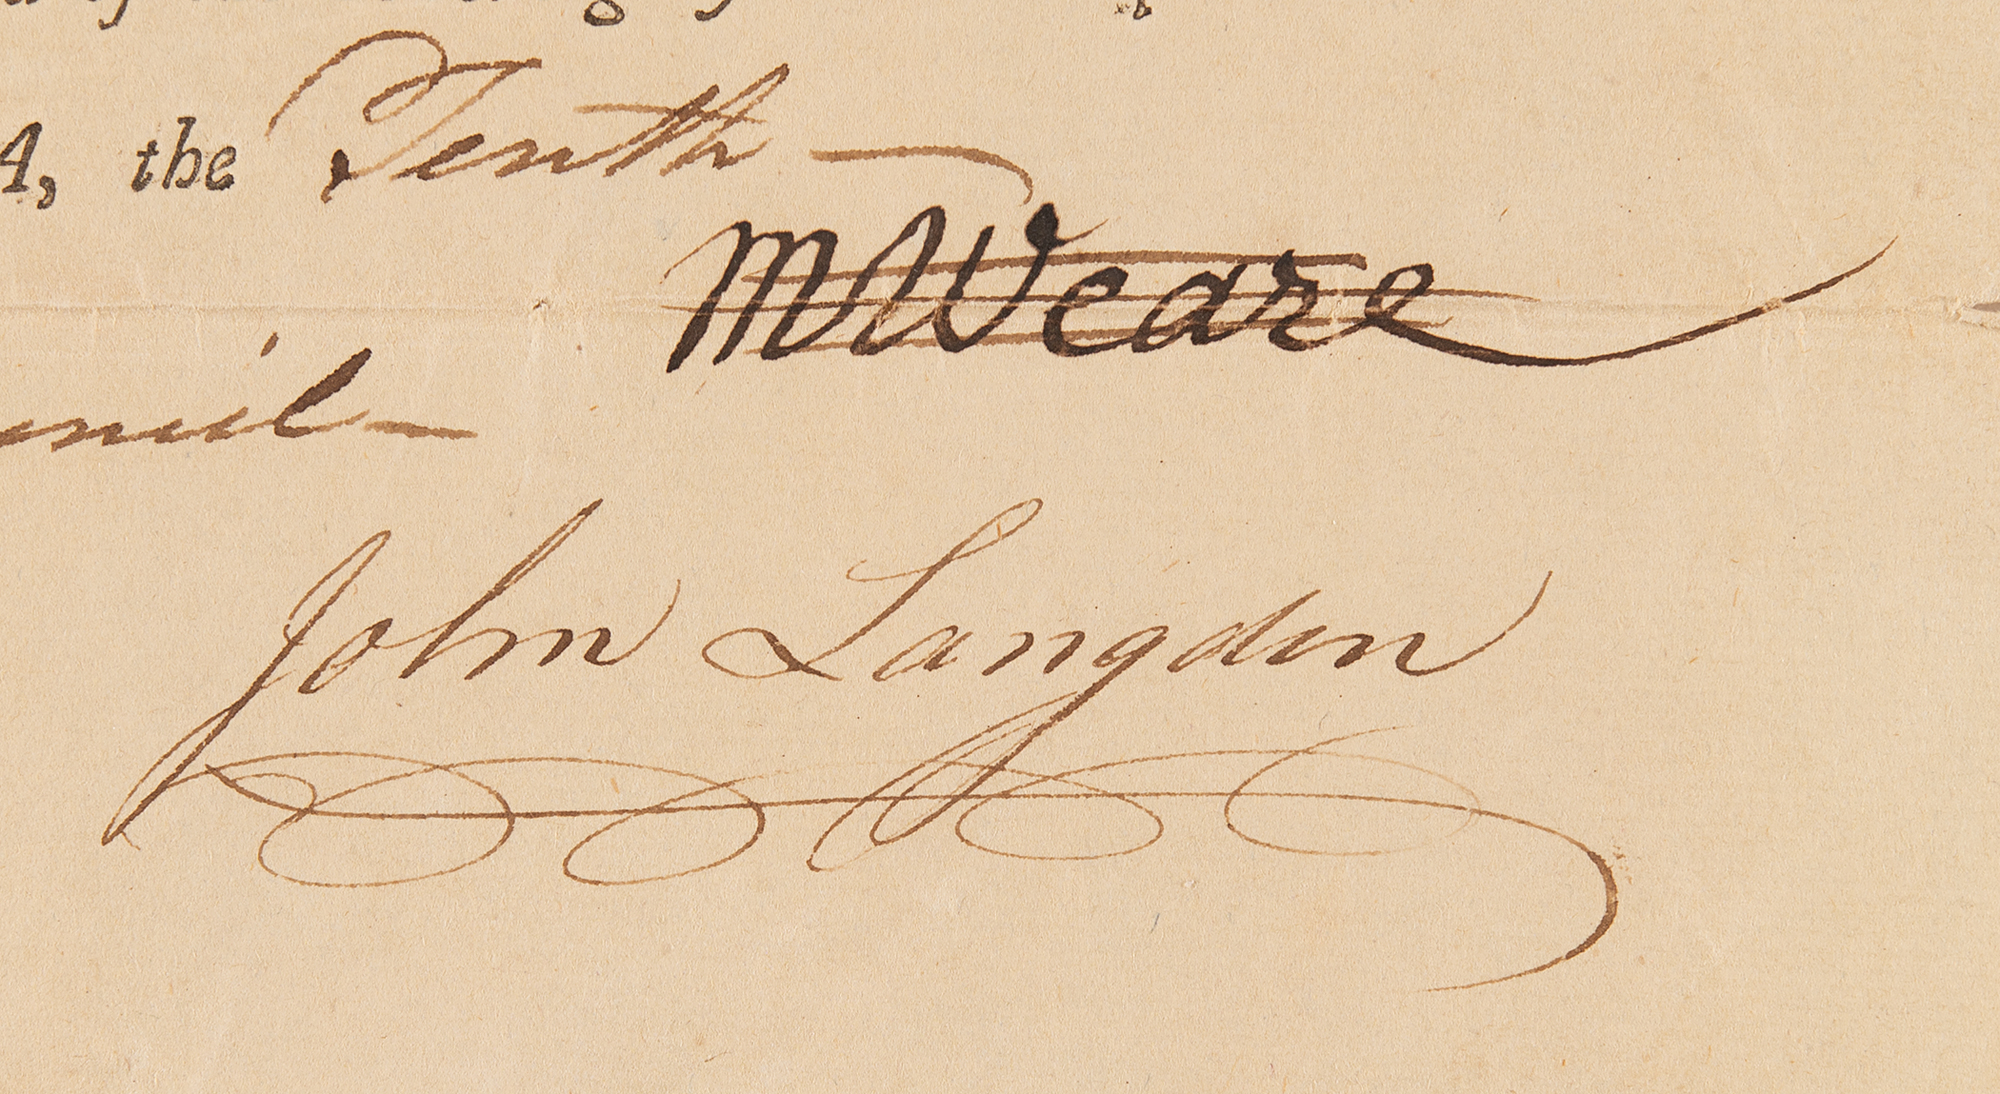 A, the Tenth
M Weare
John Langdon